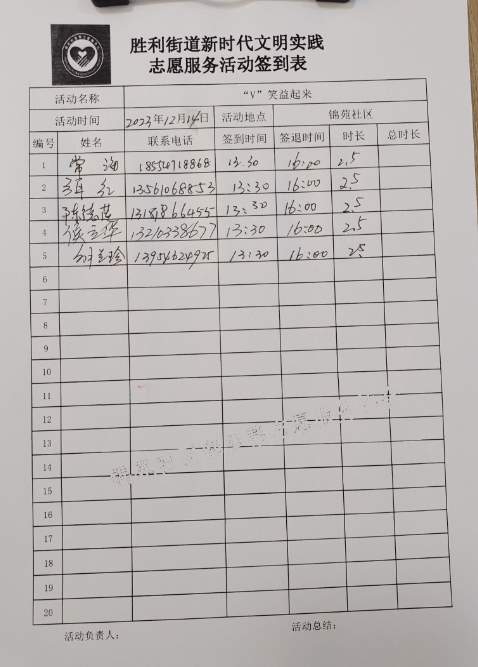 胜利街道新时代文明实践
志愿服务活动签到表
活动名称 “V”笑益起来
活动时间 2023年12月14日 活动地点 锦苑社区
编号 姓名 联系电话 签到时间 签退时间 时长 总时长
1 常 18554718868 13:30 16:00 2.5
2 红 13561068853 13:30 16:00 2.5
3 13:30 16:00 2.5
4 13210338677 13:30 16:00 2.5
5 珍 13954624925 13:30 16:00 25
6
7
8
9
10
11
12
13
14
15
16
17
18
19
20
活动负责人： 活动总结：